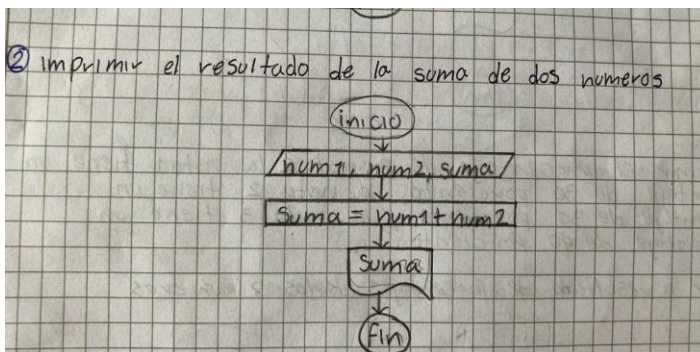 ② imprimir el resultado de la suma de dos numeros
inicio
num1, num2, suma
Suma = num1 + num2
Suma
Fin